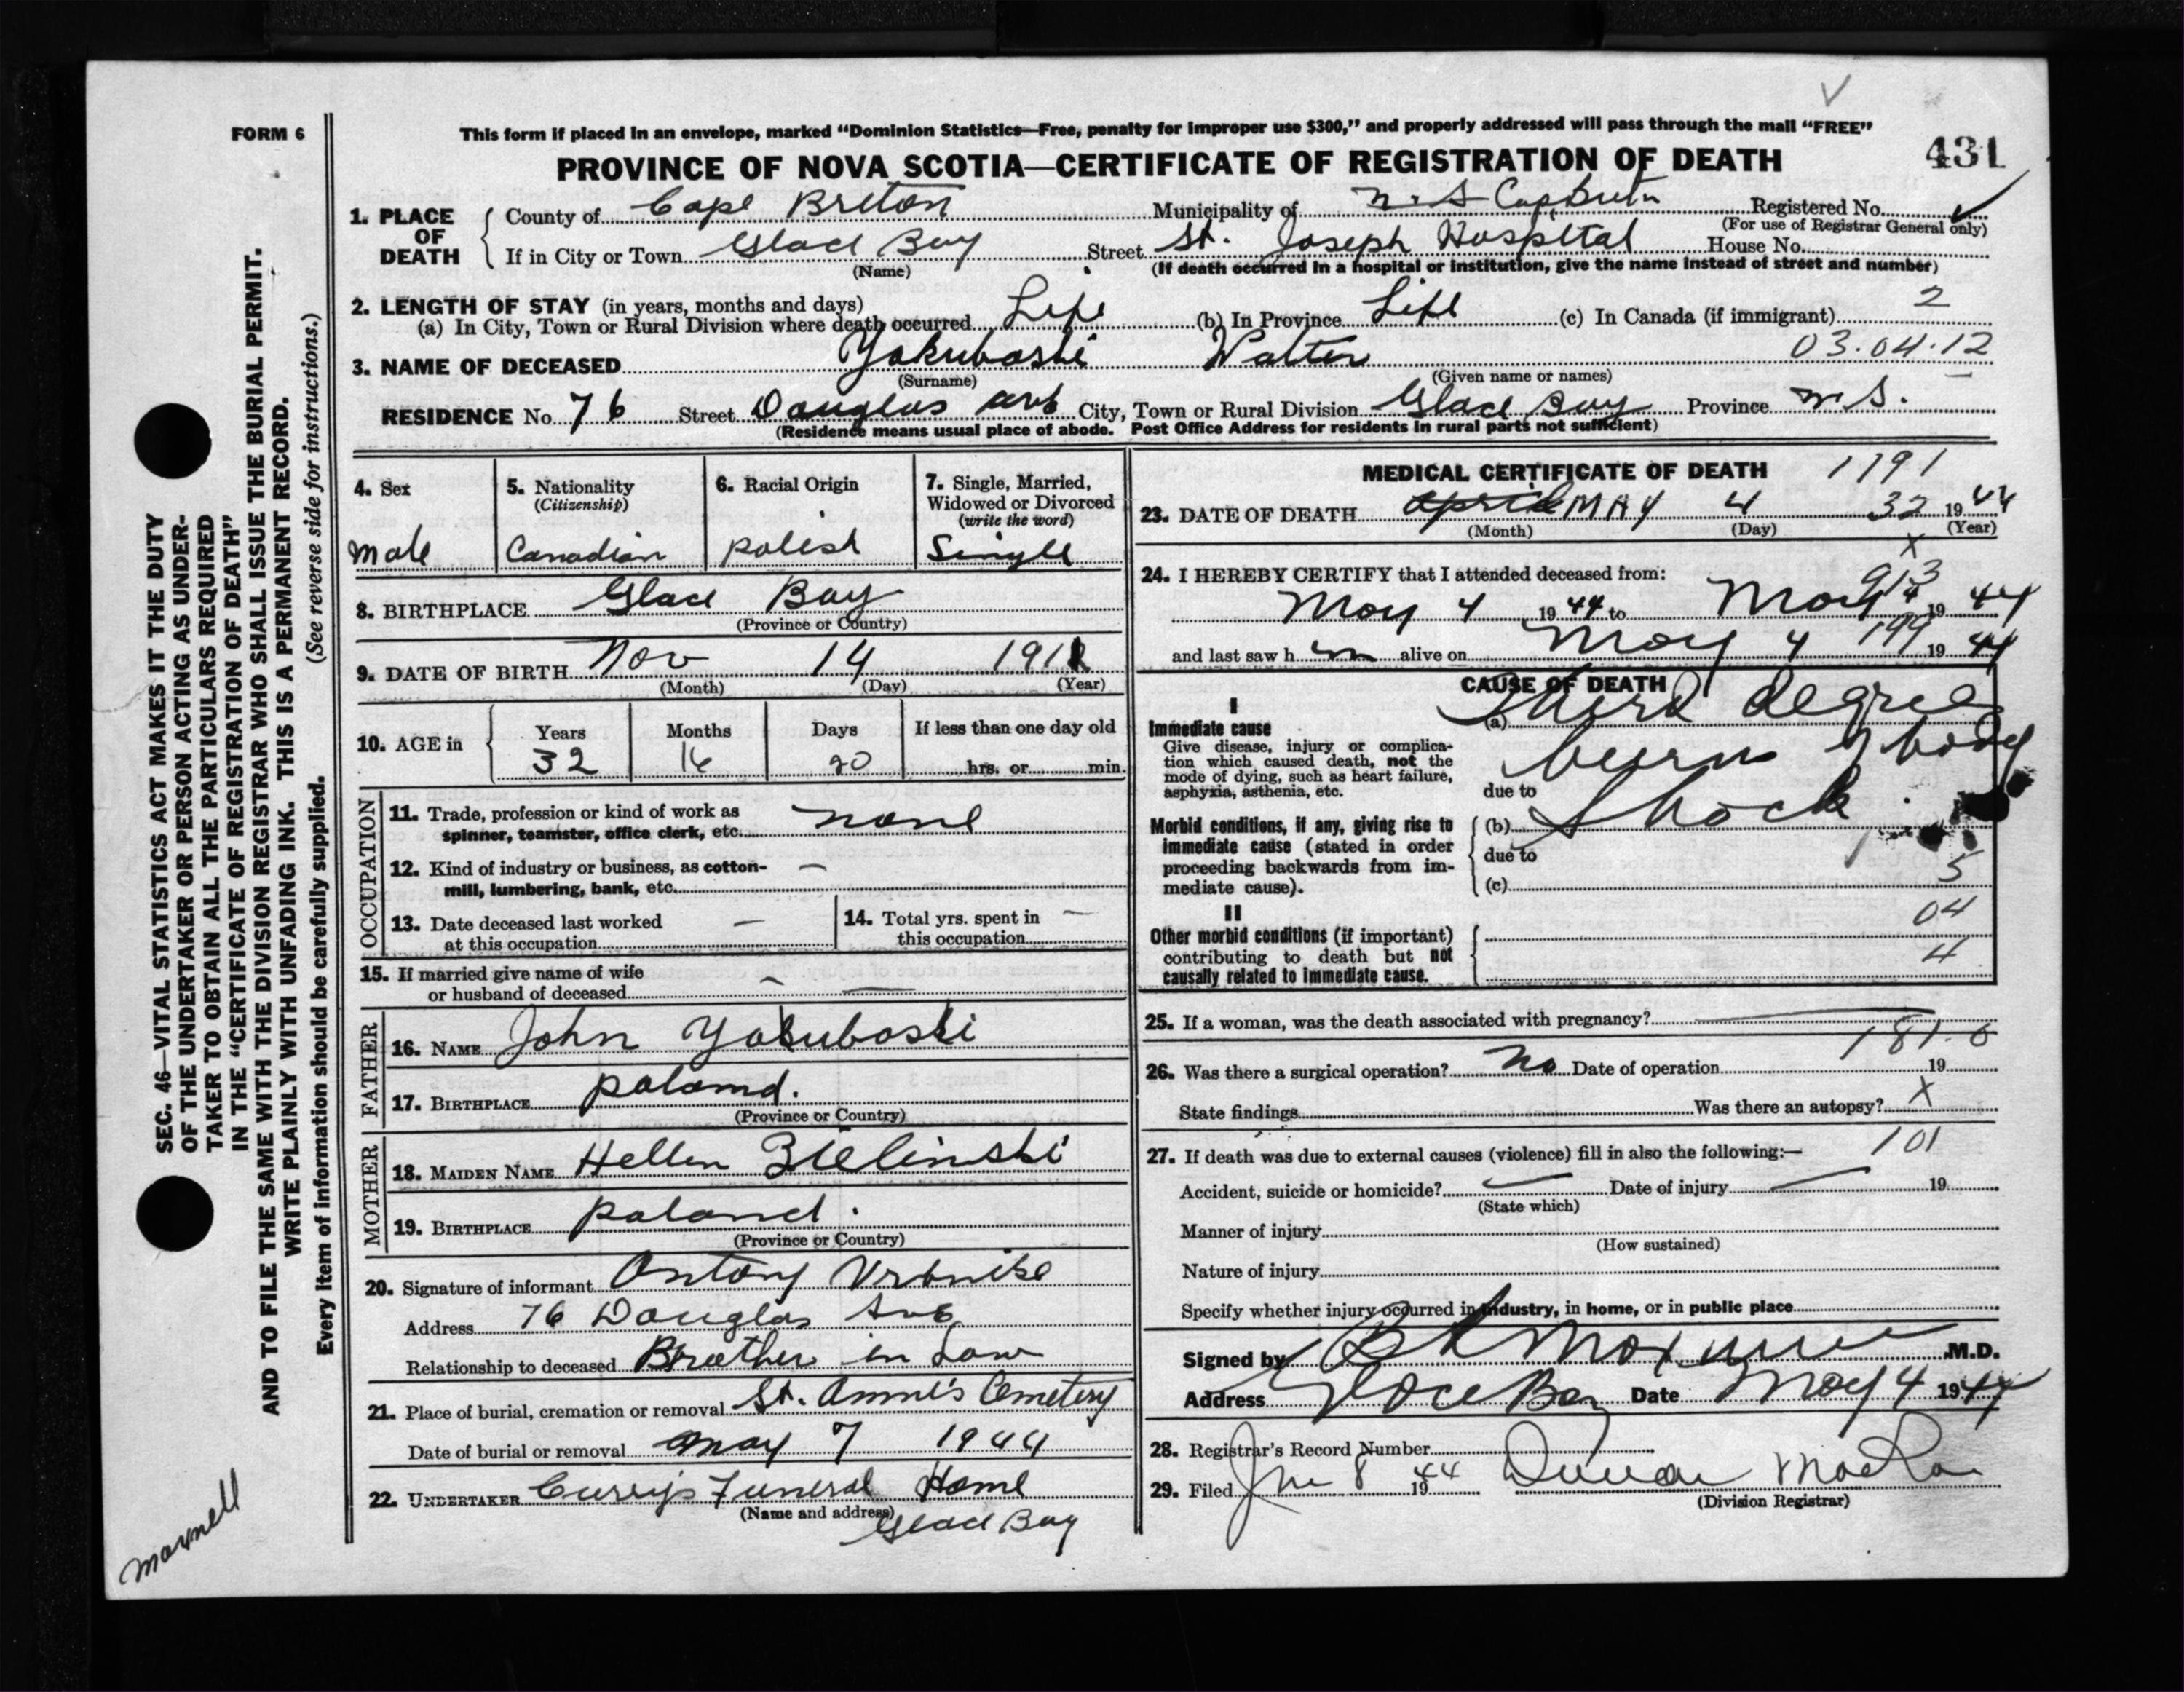 FORM 6
This form if placed in an envelope, marked "Dominion Statistics—Free, penalty for improper use $300," and properly addressed will pass through the mail "FREE"
PROVINCE OF NOVA SCOTIA—CERTIFICATE OF REGISTRATION OF DEATH
431
SEC. 46—VITAL STATISTICS ACT MAKES IT THE DUTY
OF THE UNDERTAKER OR PERSON ACTING AS UNDER-
TAKER TO OBTAIN ALL THE PARTICULARS REQUIRED
IN THE "CERTIFICATE OF REGISTRATION OF DEATH"
AND TO FILE THE SAME WITH THE DIVISION REGISTRAR WHO SHALL ISSUE THE BURIAL PERMIT.
WRITE PLAINLY WITH UNFADING INK. THIS IS A PERMANENT RECORD.
Every item of information should be carefully supplied. (See reverse side for instructions.)
1. PLACE OF DEATH
County of Cape Breton Municipality of Registered No.
(For use of Registrar General only)
If in City or Town Glace Bay Street St. Joseph Hospital House No.
(Name) (If death occurred in a hospital or institution, give the name instead of street and number)
2. LENGTH OF STAY (in years, months and days)
(a) In City, Town or Rural Division where death occurred Life (b) In Province Life (c) In Canada (if immigrant) 2
3. NAME OF DECEASED Yakuboski Walter 03.04.12
(Surname) (Given name or names)
RESIDENCE No. 76 Street Douglas ave City, Town or Rural Division Glace Bay Province N.S.
(Residence means usual place of abode. Post Office Address for residents in rural parts not sufficient)
4. Sex
male
5. Nationality
(Citizenship)
Canadian
6. Racial Origin
polish
7. Single, Married,
Widowed or Divorced
(write the word)
Single
8. BIRTHPLACE Glace Bay
(Province or Country)
9. DATE OF BIRTH Nov 14 1911
(Month) (Day) (Year)
10. AGE in Years Months Days If less than one day old
32 20 hrs. or min.
OCCUPATION
11. Trade, profession or kind of work as
spinner, teamster, office clerk, etc. none
12. Kind of industry or business, as cotton-
mill, lumbering, bank, etc. —
13. Date deceased last worked
at this occupation —
14. Total yrs. spent in
this occupation —
15. If married give name of wife
or husband of deceased —
FATHER
16. NAME John Yakuboski
17. BIRTHPLACE poland.
(Province or Country)
MOTHER
18. MAIDEN NAME Hellen Zielinski
19. BIRTHPLACE poland.
(Province or Country)
20. Signature of informant Antony
Address 76 Douglas Ave
Relationship to deceased Brother in Law
21. Place of burial, cremation or removal St. Anne's Cemetery
Date of burial or removal may 7 1944
22. UNDERTAKER Curry's Funeral Home
(Name and address) Glace Bay
MEDICAL CERTIFICATE OF DEATH 1791
23. DATE OF DEATH april MAY 4 32 1944
(Month) (Day) (Year)
x
24. I HEREBY CERTIFY that I attended deceased from: 913
May 4 1944 to May 4 1944
and last saw h im alive on May 4 199 1944
CAUSE OF DEATH
I
Immediate cause
Give disease, injury or complica-
tion which caused death, not the
mode of dying, such as heart failure,
asphyxia, asthenia, etc.
(a) Third degree
burns of body
due to
Morbid conditions, if any, giving rise to
immediate cause (stated in order
proceeding backwards from im-
mediate cause).
(b) Shock
due to
(c) 5
II
Other morbid conditions (if important)
contributing to death but not
causally related to immediate cause.
04
4
25. If a woman, was the death associated with pregnancy? —
181.6
26. Was there a surgical operation? No Date of operation 19
State findings Was there an autopsy? X
101
27. If death was due to external causes (violence) fill in also the following:—
Accident, suicide or homicide? — Date of injury — 19
(State which)
Manner of injury
(How sustained)
Nature of injury
Specify whether injury occurred in industry, in home, or in public place
Signed by M.D.
Address Glace Bay Date May 4 1944
28. Registrar's Record Number
29. Filed 8 1944 Duncan MacRae
(Division Registrar)
maxwell